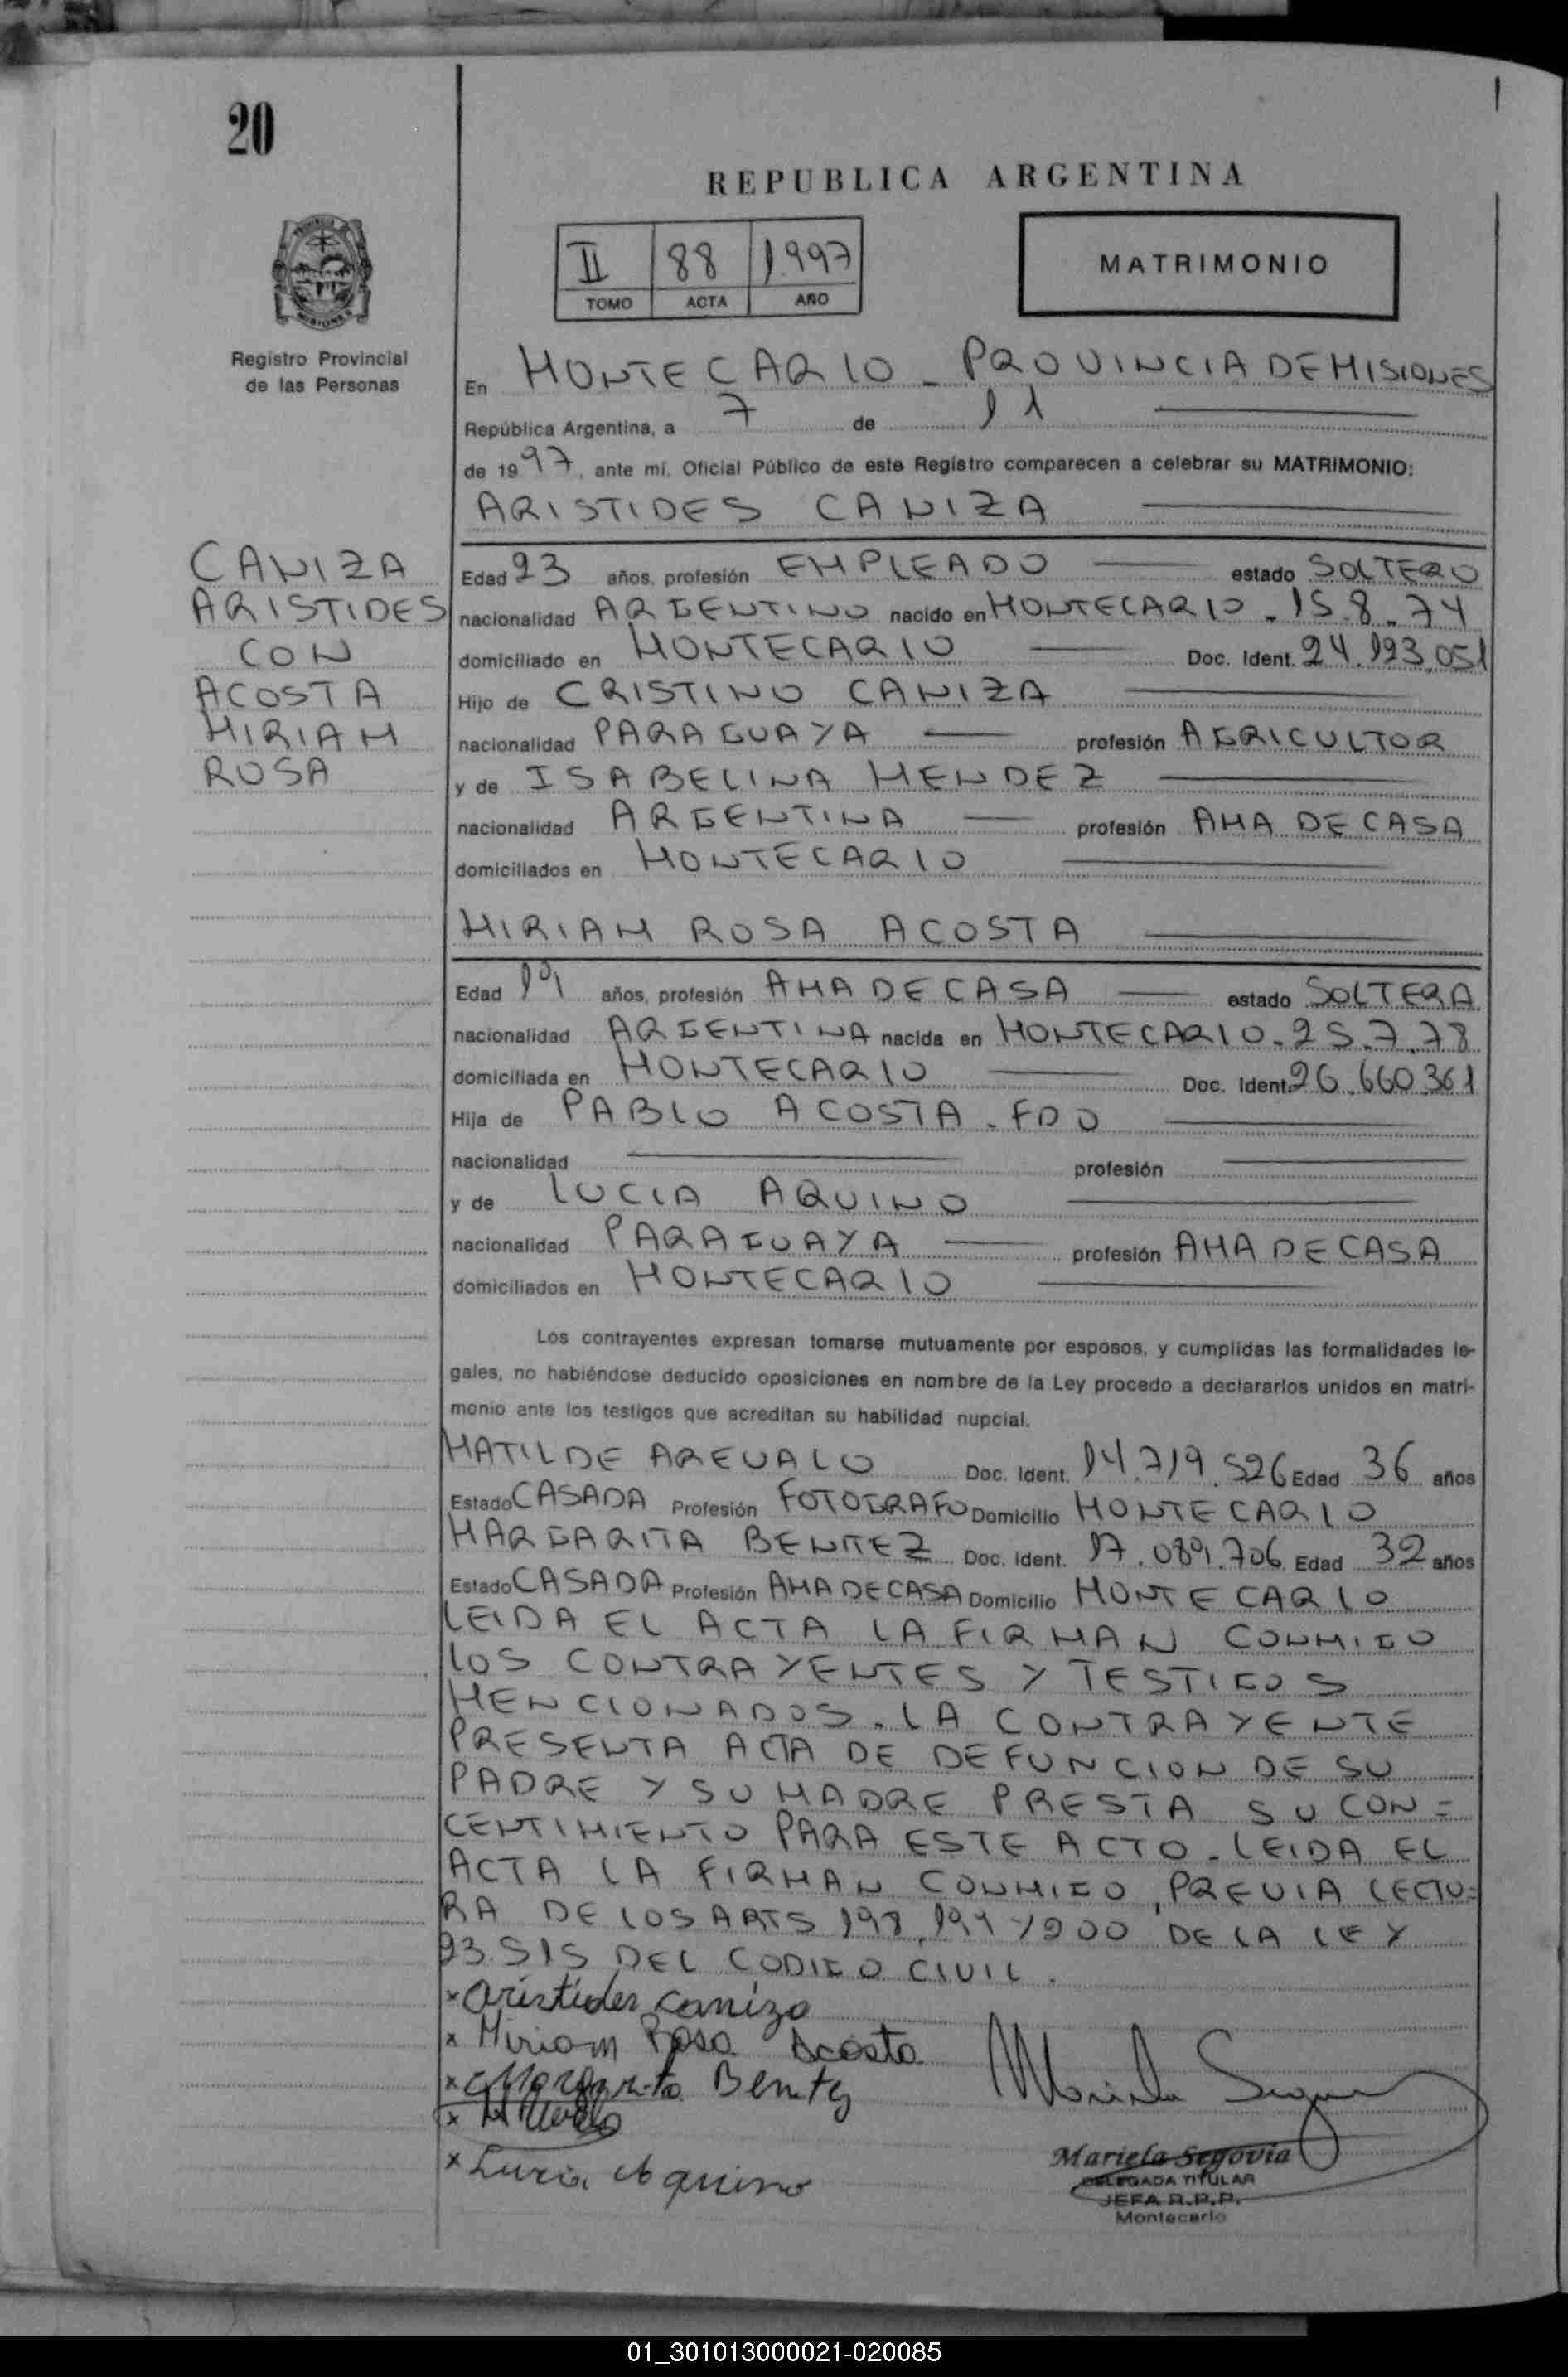 20
REPUBLICA ARGENTINA
II 88 1997
TOMO ACTA AÑO
MATRIMONIO
Registro Provincial
de las Personas
En MONTECARLO - PROVINCIA DE MISIONES
República Argentina, a 7 de 11
de 1997, ante mí, Oficial Público de este Registro comparecen a celebrar su MATRIMONIO:
ARISTIDES CANIZA
CANIZA
ARISTIDES
CON
ACOSTA
MIRIAM
ROSA
Edad 23 años, profesión EMPLEADO estado SOLTERO
nacionalidad ARGENTINO nacido en MONTECARLO - 15.8.74
domiciliado en MONTECARLO Doc. Ident. 24.123.051
Hijo de CRISTINO CANIZA
nacionalidad PARAGUAYA profesión AGRICULTOR
y de ISABELINA MENDEZ
nacionalidad ARGENTINA profesión AMA DE CASA
domiciliados en MONTECARLO
MIRIAM ROSA ACOSTA
Edad 19 años, profesión AMA DE CASA estado SOLTERA
nacionalidad ARGENTINA nacida en MONTECARLO - 25.7.78
domiciliada en MONTECARLO Doc. Ident. 26.660.361
Hija de PABLO ACOSTA - FDO
nacionalidad profesión
y de LUCIA AQUINO
nacionalidad PARAGUAYA profesión AMA DE CASA
domiciliados en MONTECARLO
Los contrayentes expresan tomarse mutuamente por esposos, y cumplidas las formalidades le-
gales, no habiéndose deducido oposiciones en nombre de la Ley procedo a declararlos unidos en matri-
monio ante los testigos que acreditan su habilidad nupcial.
MATILDE AREVALO Doc. Ident. 14.719.526 Edad 36 años
Estado CASADA Profesión FOTOGRAFO Domicilio MONTECARLO
MARGARITA BENITEZ Doc. Ident. 17.089.706 Edad 32 años
Estado CASADA Profesión AMA DE CASA Domicilio MONTECARLO
LEIDA EL ACTA LA FIRMAN CONMIGO
LOS CONTRAYENTES Y TESTIGOS
MENCIONADOS. LA CONTRAYENTE
PRESENTA ACTA DE DEFUNCION DE SU
PADRE Y SU MADRE PRESTA SU CON=
CENTIMIENTO PARA ESTE ACTO - LEIDA EL
ACTA LA FIRMAN CONMIGO, PREVIA LECTU=
RA DE LOS ARTS 198, 199 Y 200 DE LA LEY
23.515 DEL CODIGO CIVIL.
x Aristides Caniza
x Miriam Rosa Acosta
x Margarita Benitez
x Lucia Aquino
Mariela Segovia
Mariela Segovia
DELEGADA TITULAR
JEFA R.P.P.
Montecarlo
01_301013000021-020085